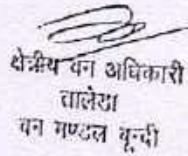 क्षेत्रीय वन अधिकारी
तालेडा
वन मण्डल बून्दी